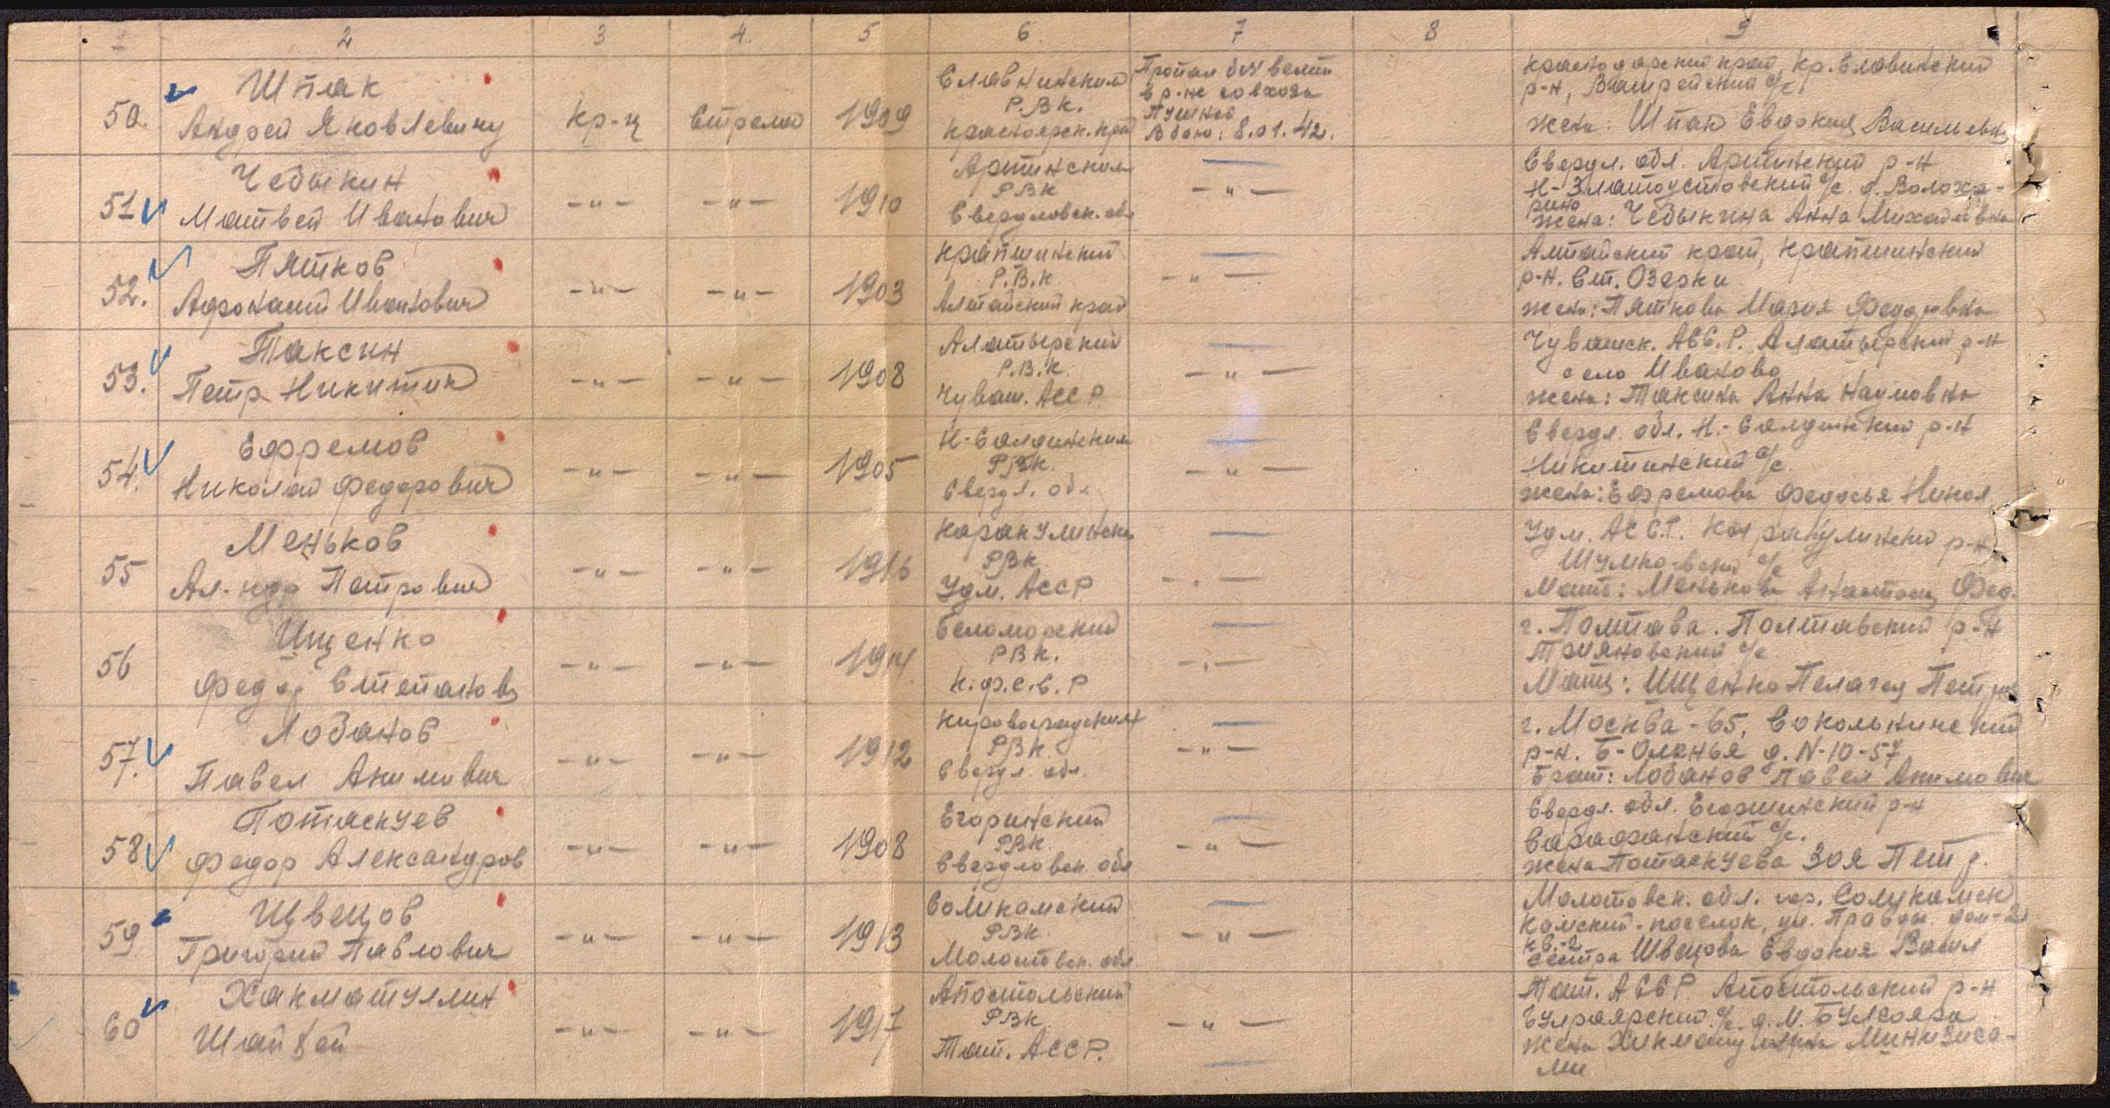 1 2 3 4 5 6 7 8 9
50. Шпак
Андрей Яковлевич
кр-ц Стрелок 1909
Славянским
Р.В.К.
Красноярск. край
Пропал без вести
в р-не совхоза
Пушнов
В бою: 8.01.42.
Краснодарский край, Кр. Славинский
р-н,
жена: Шпак Евдокия Василевна
51 Чебыкин
Матвей Иванович
-"- -"- 1910
Артинским
РВК
Свердловск. обл
-"-
Свердл. обл. Артинский р-н
Н-Златоустовский с/с. д. Волохо-
рино
жена: Чебыкина Анна Михайловна
52. Пятков
Афонасий Иванович
-"- -"- 1903
Крапшинский
Р.В.К
Алтайский край
-"-
Алтайский край, Крапшинский
р-н. Ст. Озерки
жена: Пяткова Мария Федоровна
53. Таксин
Петр Никитич
-"- -"- 1908
Алатырский
Р.В.К.
Чуваш. АССР.
-"-
Чувашск. АСС.Р. Алатырский р-н
село Иваново
жена: Таксина Анна Наумовна
54. Ефремов
Николай Федорович
-"- -"- 1905
Н-Салдинским
РВК.
Свердл. обл
-"-
Свердл. обл. Н.-Салдинский р-н
Никитинский с/с.
жена: Ефремова Федосья Никол
55 Меньков
Ал-ндр Петрович
-"- -"- 1916
Каракулинским
РВК
Удм. АССР
-"-
Удм. АССР. Каракулинский р-н
с/с
Мать: Менькова Анастасия Фед.
56 Ищенко
Федор Степанов
-"- -"- 1914
Беломорский
РВК.
К.ф.с.с.Р
-"-
г. Полтава. Полтавский р-н
с/с
Мать: Ищенко Пелагея Петров
57. Лобанов
Павел Акимович
-"- -"- 1912
Кировоградским
РВК
Свердл. обл.
-"-
г. Москва-65, Сокольнический
р-н. Б-Оленья д. N-10-57
Брат: Лобанов Павел Акимович
58 Потаскуев
Федор Александров
-"- -"- 1908
Егоршинский
РВК
Свердловск. обл
-"-
Свердл. обл. Егоршинский р-н
с/с.
жена Потаскуева Зоя Петр.
59 Швецов
Григорий Павлович
-"- -"- 1913
Соликамский
РВК
Молотовск. обл
-"-
Молотовск. обл. гор. Соликамск
Камский-поселок, ул. Правды дом-21
кв.-2
сестра Швецова Евдокия Васил
60 Хакматуллин
-"- -"- 1917
Апостольский
РВК
Тат. АССР.
-"-
Тат. АССР Апостольский р-н
с/с. д. М.
жена
ми